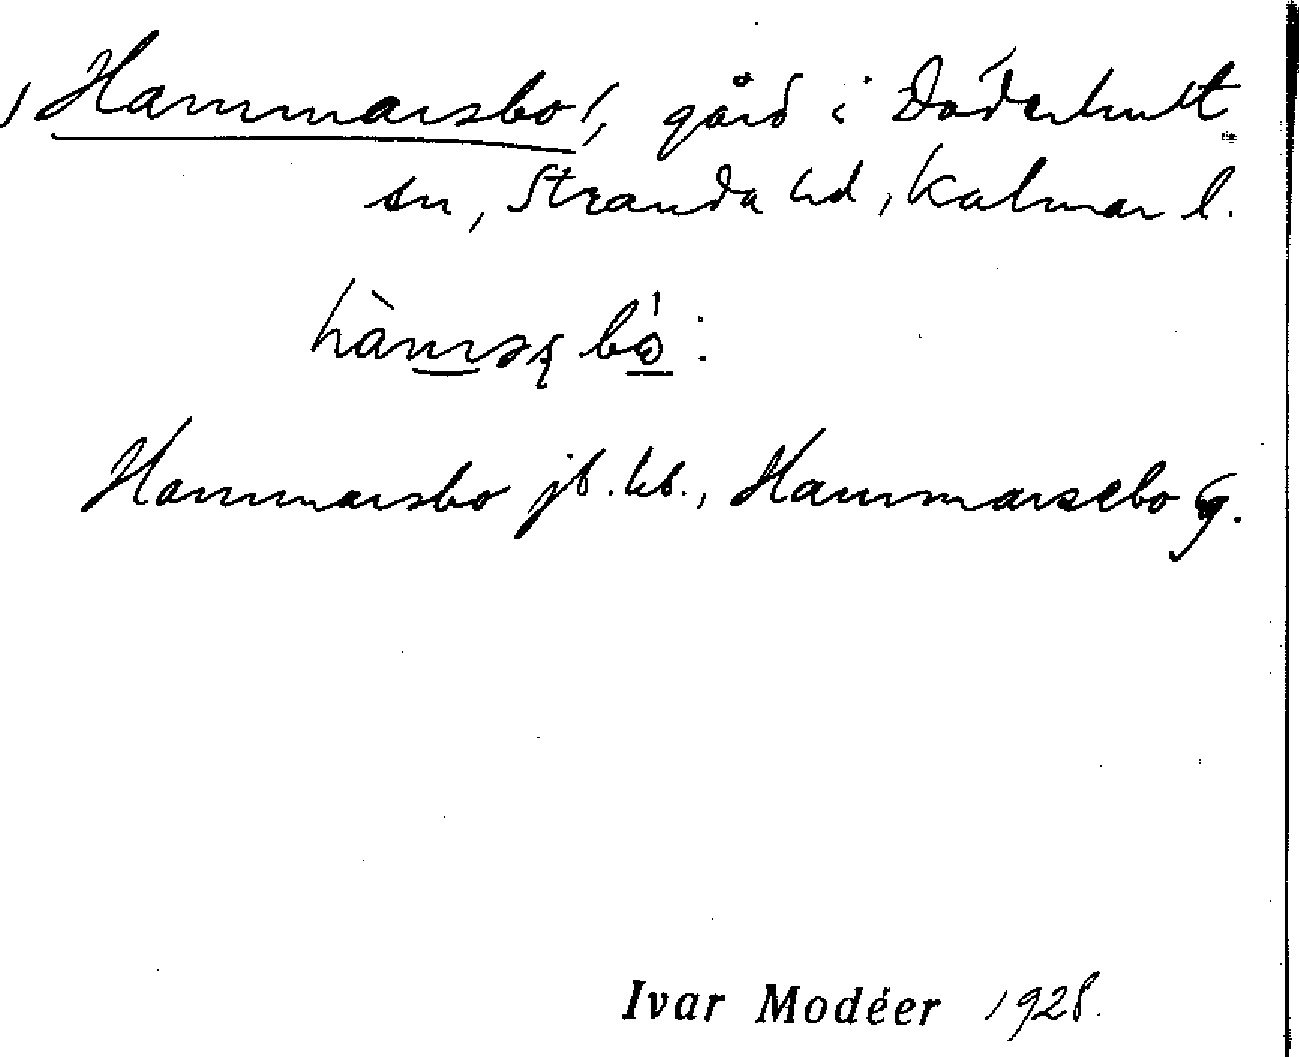 /Hammarsbo/, gård i Döderhult
sn, Stranda hd, Kalmar l.
Hammarsbo jb. kb., Hammarsebo G.
Ivar Modéer 1928.